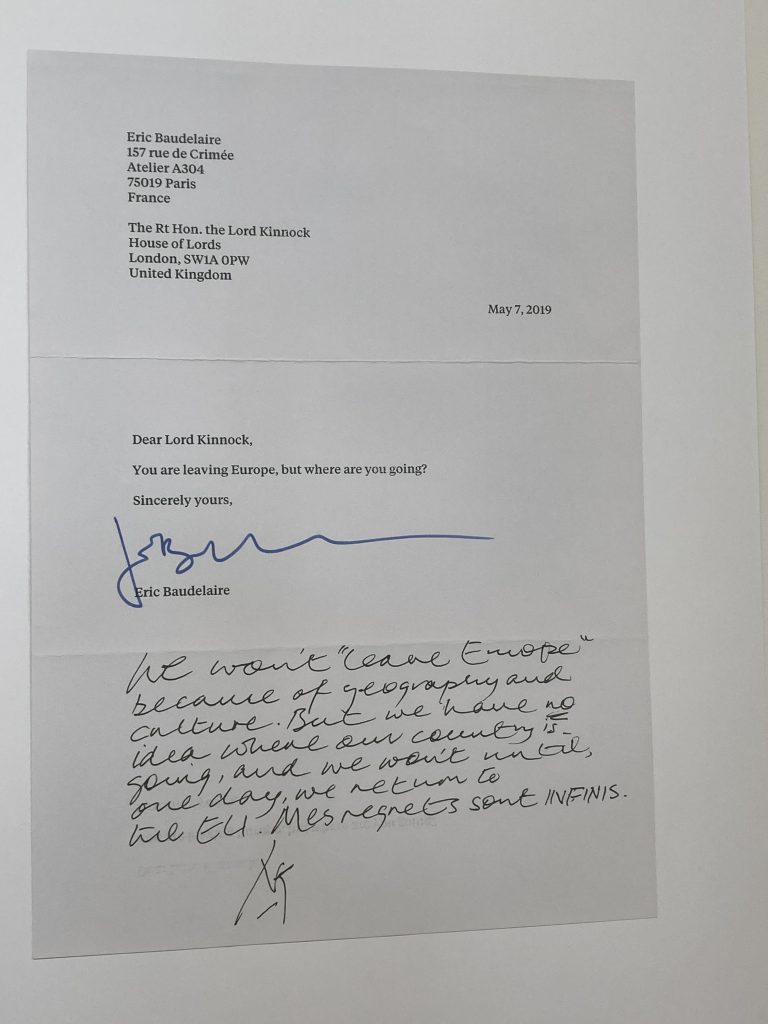 Eric Baudelaire
157 rue de Crimée
Atelier A304
75019 Paris
France
The Rt Hon. the Lord Kinnock
House of Lords
London, SW1A 0PW
United Kingdom
May 7, 2019
Dear Lord Kinnock,
You are leaving Europe, but where are you going?
Sincerely yours,
Eric Baudelaire
We won't "leave Europe"
because of geography and
culture. But we have no
idea where our country is
going, and we won't until,
one day, we return to
the EU. Mes regrets sont INFINIS.